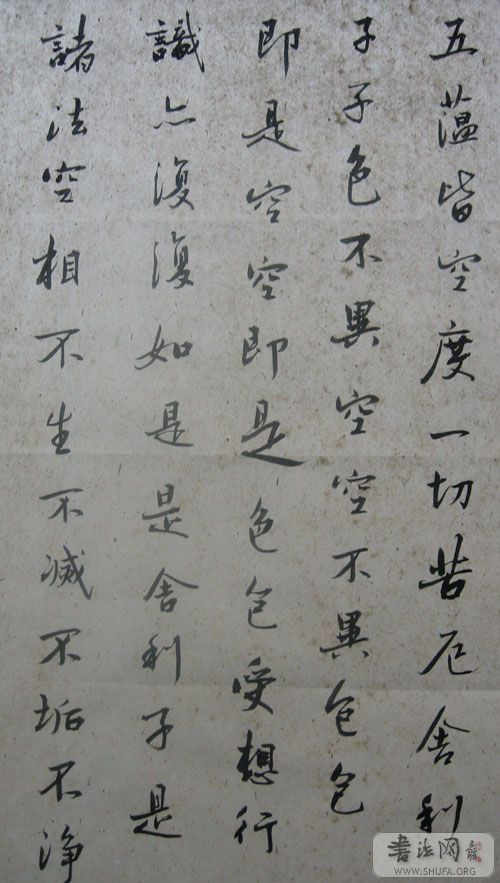 五蕰皆空度一切苦厄舍利
子子色不異空空不異色色
即是空空即是色色受想行
識亦復復如是是舍利子是
諸法空相不生不滅不垢不淨
書法网
WWW.SHUFA.ORG